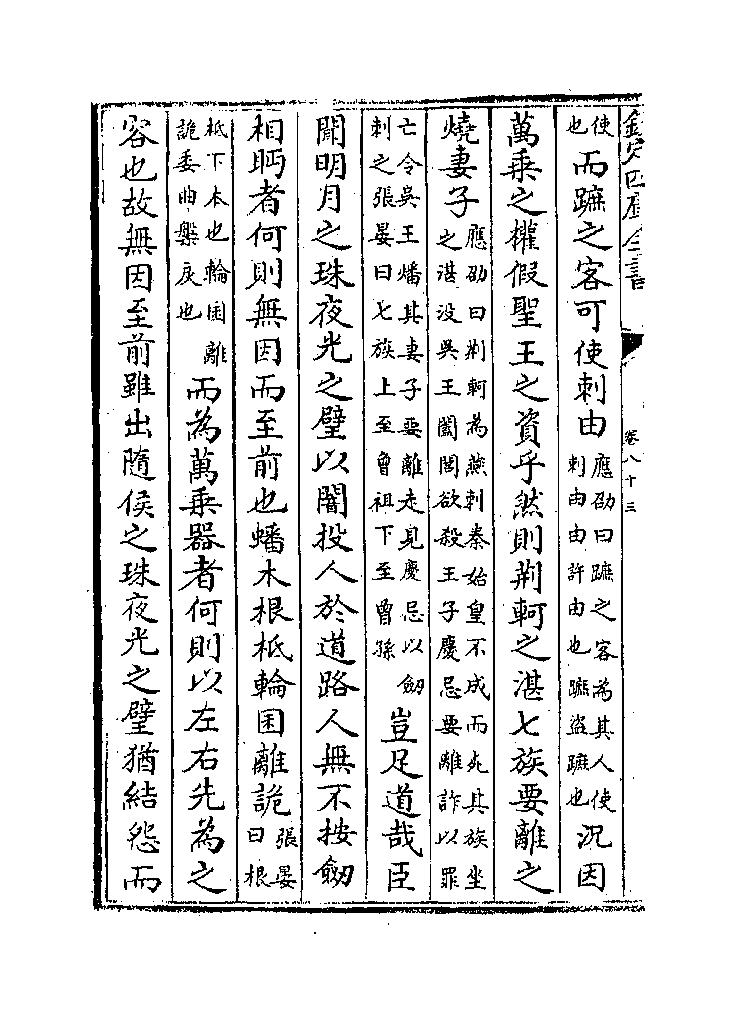 欽定四庫全書
卷八十三
使也而蹠之客可使刺由應劭曰蹠之客為其人使刺由由許由也蹠盜蹠也況因
萬乗之權假聖王之資乎然則荆軻之湛七族要離之
燒妻子應劭曰荆軻為燕刺秦始皇不成而死其族坐之湛没吳王闔閭欲殺王子慶忌要離詐以罪
亡令吳王燔其妻子要離走見慶忌以劒刺之張晏曰七族上至曾祖下至曾孫豈足道哉臣
聞明月之珠夜光之璧以闇投人於道路人無不按劒
相眄者何則無因而至前也蟠木根柢輪囷離詭張晏曰根
柢下本也輪囷離詭委曲盤戾也而為萬乗器者何則以左右先為之
容也故無因至前雖出隨侯之珠夜光之璧猶結怨而